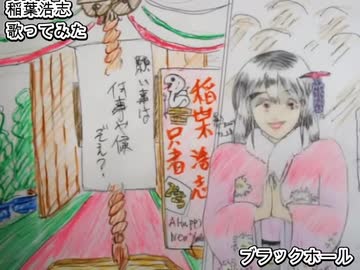 稲葉浩志
歌ってみた
願い事は
何事や候
ぞえ?
稲葉浩志
A Happy
New Year
ブラックホール